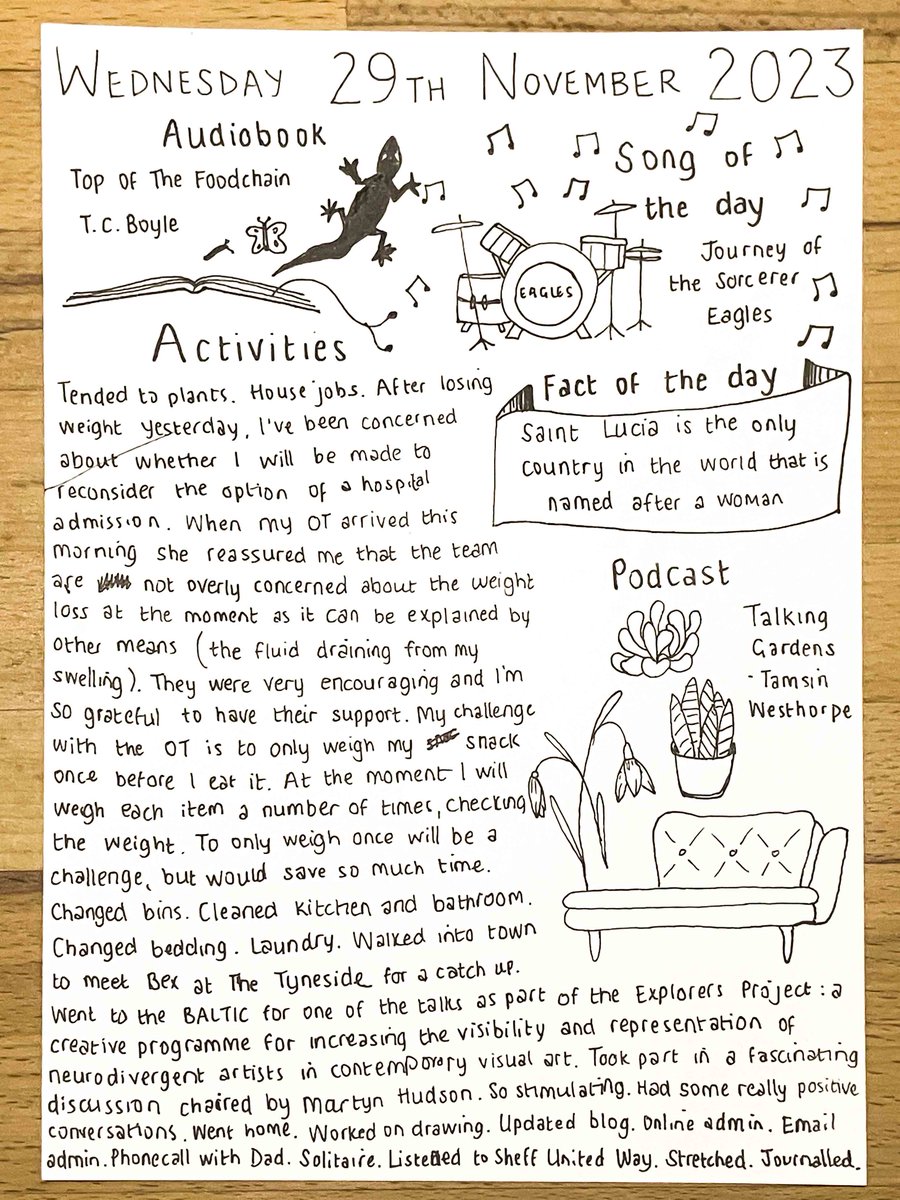 WEDNESDAY 29TH NOVEMBER 2023
Audiobook
Top of The Foodchain
T.C. Boyle
Song of
the day
Journey of
the Sorcerer
Eagles
EAGLES
Activities
Tended to plants. House jobs. After losing
weight yesterday, I've been concerned
about whether I will be made to
reconsider the option of a hospital
admission. When my OT arrived this
morning she reassured me that the team
are not overly concerned about the weight
loss at the moment as it can be explained by
other means (the fluid draining from my
swelling). They were very encouraging and I'm
so grateful to have their support. My challenge
with the OT is to only weigh my snack
once before I eat it. At the moment I will
weigh each item a number of times, checking
the weight. To only weigh once will be a
challenge, but would save so much time.
Changed bins. Cleaned kitchen and bathroom.
Changed bedding. Laundry. Walked into town
to meet Bex at The Tyneside for a catch up.
Went to the BALTIC for one of the talks as part of the Explorers Project: a
creative programme for increasing the visibility and representation of
neurodivergent artists in contemporary visual art. Took part in a fascinating
discussion chaired by Martyn Hudson. So stimulating. Had some really positive
conversations. Went home. Worked on drawing. Updated blog. Online admin. Email
admin. Phonecall with Dad. Solitaire. Listened to Sheff United Way. Stretched. Journalled.
Fact of the day
Saint Lucia is the only
country in the world that is
named after a woman
Podcast
Talking
Gardens
- Tamsin
Westhorpe